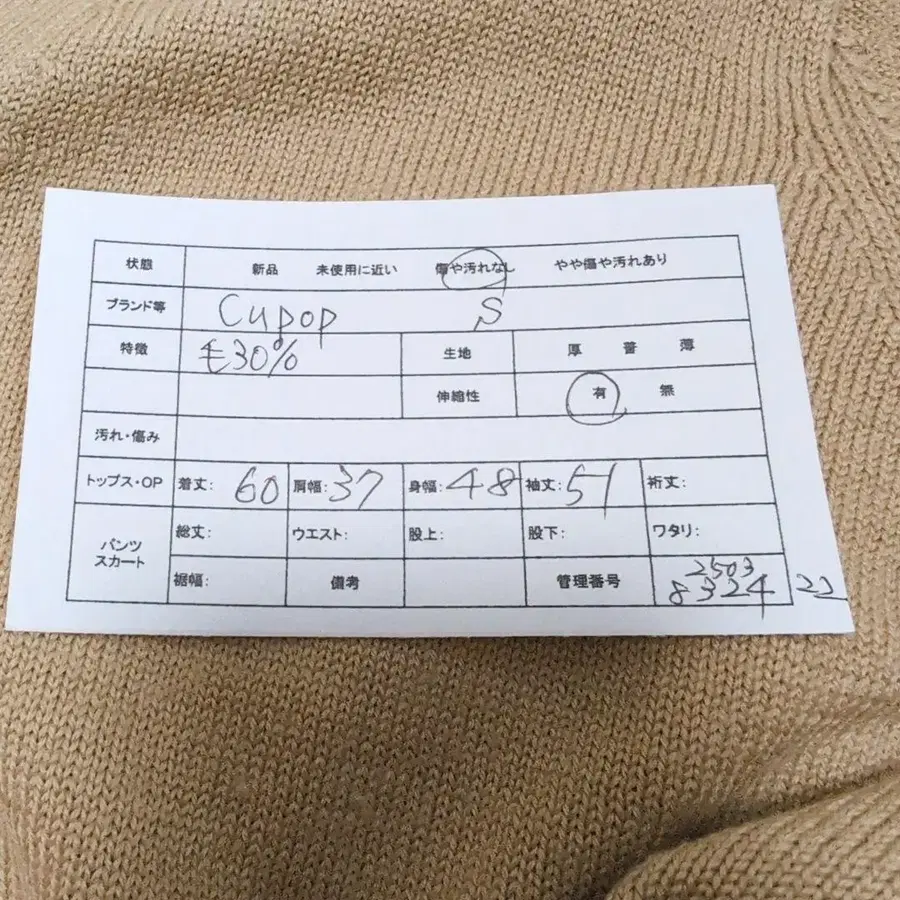 状態 新品 未使用に近い 傷や汚れなし やや傷や汚れあり
ブランド等 Cupop S
特徴 毛30% 生地 厚 普 薄
伸縮性 有 無
汚れ・傷み
トップス・OP 着丈: 60 肩幅: 37 身幅: 48 袖丈: 51 裄丈:
パンツ スカート 総丈: ウエスト: 股上: 股下: ワタリ:
裾幅: 備考 管理番号 2503
8324 22